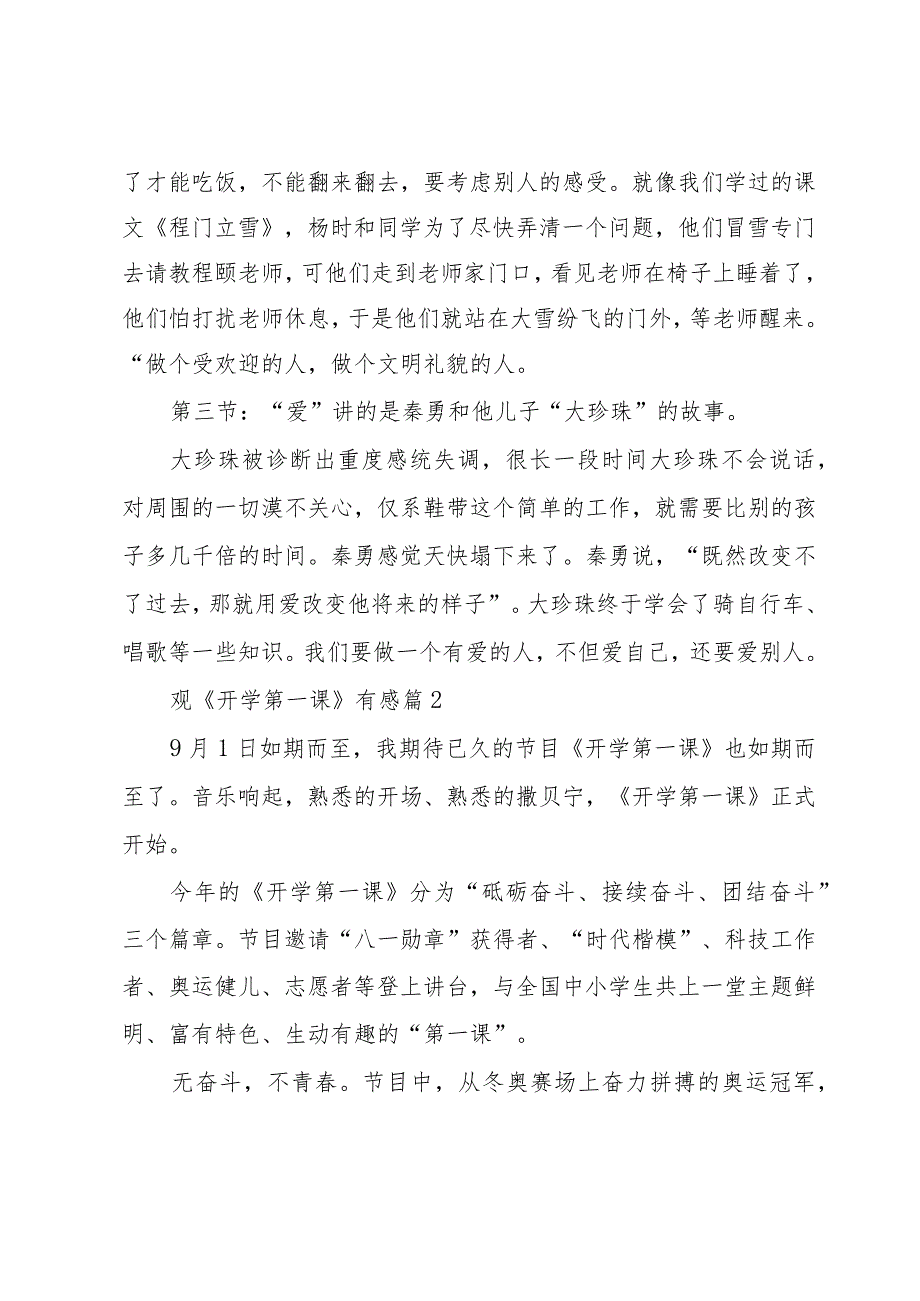 了才能吃饭，不能翻来翻去，要考虑别人的感受。就像我们学过的课
文《程门立雪》，杨时和同学为了尽快弄清一个问题，他们冒雪专门
去请教程颐老师，可他们走到老师家门口，看见老师在椅子上睡着了，
他们怕打扰老师休息，于是他们就站在大雪纷飞的门外，等老师醒来。
“做个受欢迎的人，做个文明礼貌的人。
第三节：“爱”讲的是秦勇和他儿子“大珍珠”的故事。
大珍珠被诊断出重度感统失调，很长一段时间大珍珠不会说话，
对周围的一切漠不关心，仅系鞋带这个简单的工作，就需要比别的孩
子多几千倍的时间。秦勇感觉天快塌下来了。秦勇说，“既然改变不
了过去，那就用爱改变他将来的样子”。大珍珠终于学会了骑自行车、
唱歌等一些知识。我们要做一个有爱的人，不但爱自己，还要爱别人。
观《开学第一课》有感篇2
9月1日如期而至，我期待已久的节目《开学第一课》也如期而
至了。音乐响起，熟悉的开场、熟悉的撒贝宁，《开学第一课》正式
开始。
今年的《开学第一课》分为“砥砺奋斗、接续奋斗、团结奋斗”
三个篇章。节目邀请“八一勋章”获得者、“时代楷模”、科技工作
者、奥运健儿、志愿者等登上讲台，与全国中小学生共上一堂主题鲜
明、富有特色、生动有趣的“第一课”。
无奋斗，不青春。节目中，从冬奥赛场上奋力拼搏的奥运冠军，